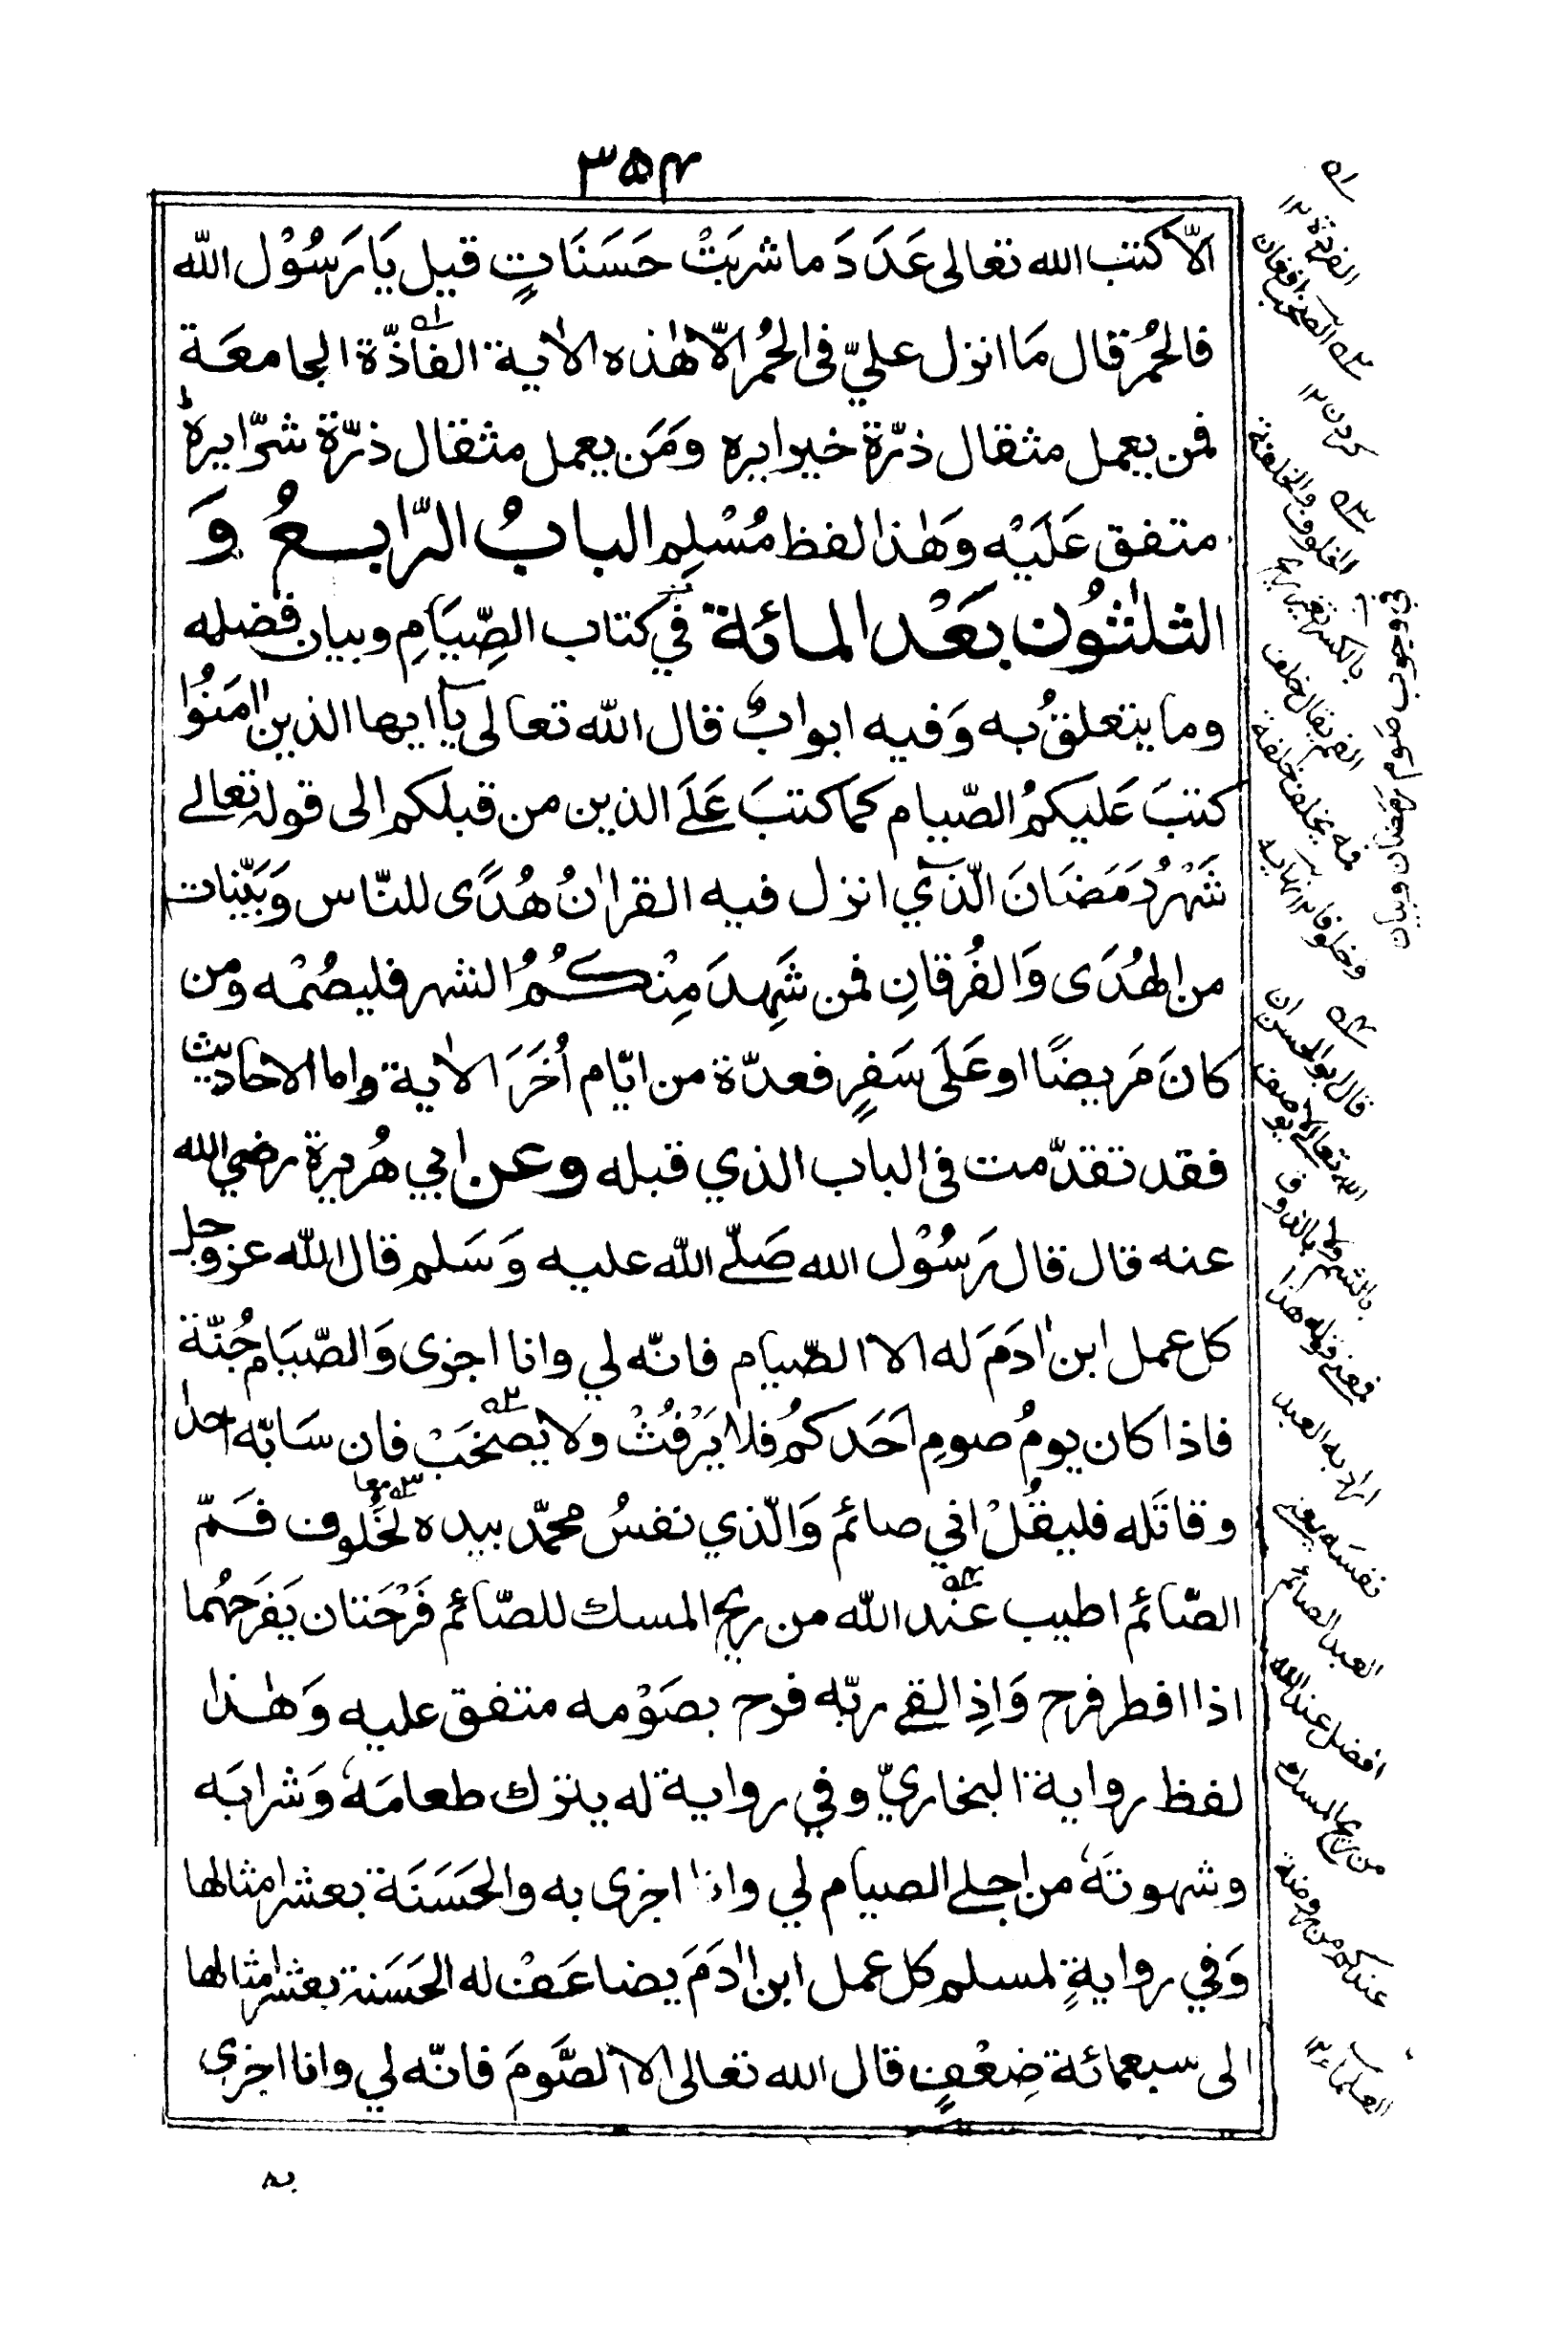 ۳۵۴
الّا كتب الله تعالى عَدَدَ ما شربَتْ حَسَنَاتٍ قيل يَا رَسُوْل اللّٰه
فالحُمُر قال مَا انزل عليّ فى الحُمُر الّا هٰذه الاٰية الفاذّة الجامعَة
فمن يعمل مثقال ذرّة خيرا يره ومَن يعمل مثقال ذرّة شرّا يره ط
متفق عَلَيْه وَهٰذا لفظ مُسْلِم البابُ الرّابعُ وَ
الثلٰثُون بَعْد المائة في كتاب الصِّيَامِ وبيان فضله
وما يتعلقُ به وَفيه ابوابٌ قال اللّٰه تعالى يٓا ايها الذين اٰمَنُوا
كتبَ عَليكمُ الصّيام كما كتبَ عَلَى الذين من قبلكم الى قوله تعالے
شَهْرُ رَمَضَانَ الّذيٓ انزل فيه القراٰنُ هُدًى للنّاس وَبَيّنات
من الهُدَى وَالفُرقانِ فمن شَهِدَ مِنْكُمُ الشهر فليصُمْه ومن
كانَ مَريضًا او عَلَى سَفرٍ فعدّة من ايّام اُخَرَ الاٰية واما الاحاديث
فقد تقدّمت فى الباب الذي قبله وعن ابي هُريرة رضي الله
عنه قال قال رَسُوْل الله صَلّے اللّٰه عليه وَسَلم قال اللّٰه عزوجل
كل عمل ابن اٰدَمَ له الا الصّيام فانّه لي وانا اجزى وَالصّيَام جُنّة
فاذا كان يومُ صومِ اَحَدكمُ فلا يَرْفُثْ ولا يَصخَبْ فان سَابّه احدٌ
وقاتَله فليقُلْ اني صائم وَالّذي نفسُ محمّد بيده لَخُلوف فَمّ
الصّائم اطيب عند اللّٰه من ريح المسك للصّائم فَرْحَتان يَفرَحُهُما
اذا افطر فرح وَاِذا لقے ربّه فرح بصَوْمه متفق عليه وَهٰذا
لفظ رواية البخاريّ وفي رواية له يترك طعامَهٗ وَشرابَه
وشهوتَهٗ من اجلے الصيام لي وانا اجزى به والحَسَنَة بعشر امثالها
وَفي روايةٍ لمسلم كل عمل ابن اٰدَمَ يضاعَفْ له الحَسَنة بعشر امثالها
الى سبعمائة ضِعْفٍ قال الله تعالى الا الصَّومَ فانّه لي وانا اجزى
به
في وجوب صوم رمضان وبيان
قال ابو الحسن ان
الله تعالى لا يوصف
بالشم ولا بالذوق
فمعنى قوله هذا
اراد به العبد
نفسَه يعني
العبد الصائم
افضل عند الله
من ريح المسك